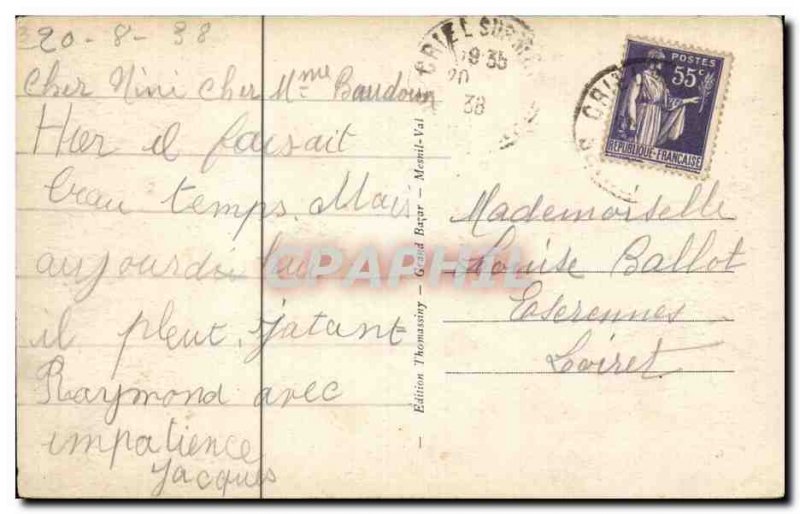 20-8-38
Cher Nini Cher Mme Baudouin
Hier il faisait
beau temps. Mais
aujourdui
il pleut. J'atant
Raymond avec
impatience
Jacques
Edition Thomassiny - Grand Bazar - Mesnil-Val
CRIEL SUR MER
19 35
20
38
CRIEL
POSTES
55c
REPUBLIQUE-FRANCAISE
Mademoiselle
Louise Ballot
Escrennes
Loiret
CPAPHIL